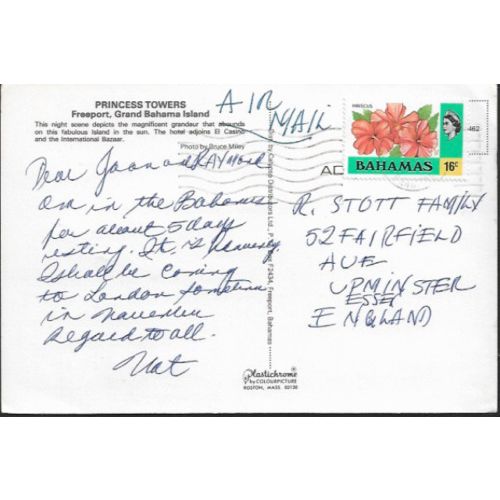 PRINCESS TOWERS
Freeport, Grand Bahama Island
This night scene depicts the magnificent grandeur that abounds
on this fabulous Island in the sun. The hotel adjoins El Casino
and the International Bazaar.
Photo by Bruce Miley
AIR
MAIL
HIBISCUS
BAHAMAS 16c
462
AD
Dear Joan and RAYMOND
Am in the Bahamas
for about 5 days
resting. It is heavenly.
I shall be coming
to London sometime
in November
Regard to all.
Nat
R. STOTT FAMILY
52 FAIRFIELD
AVE
UPMINSTER
ESSEX
ENGLAND
Distributors Ltd., P.
F2434, Freeport, Bahamas
Plastichrome
by COLOURPICTURE
BOSTON, MASS. 02130